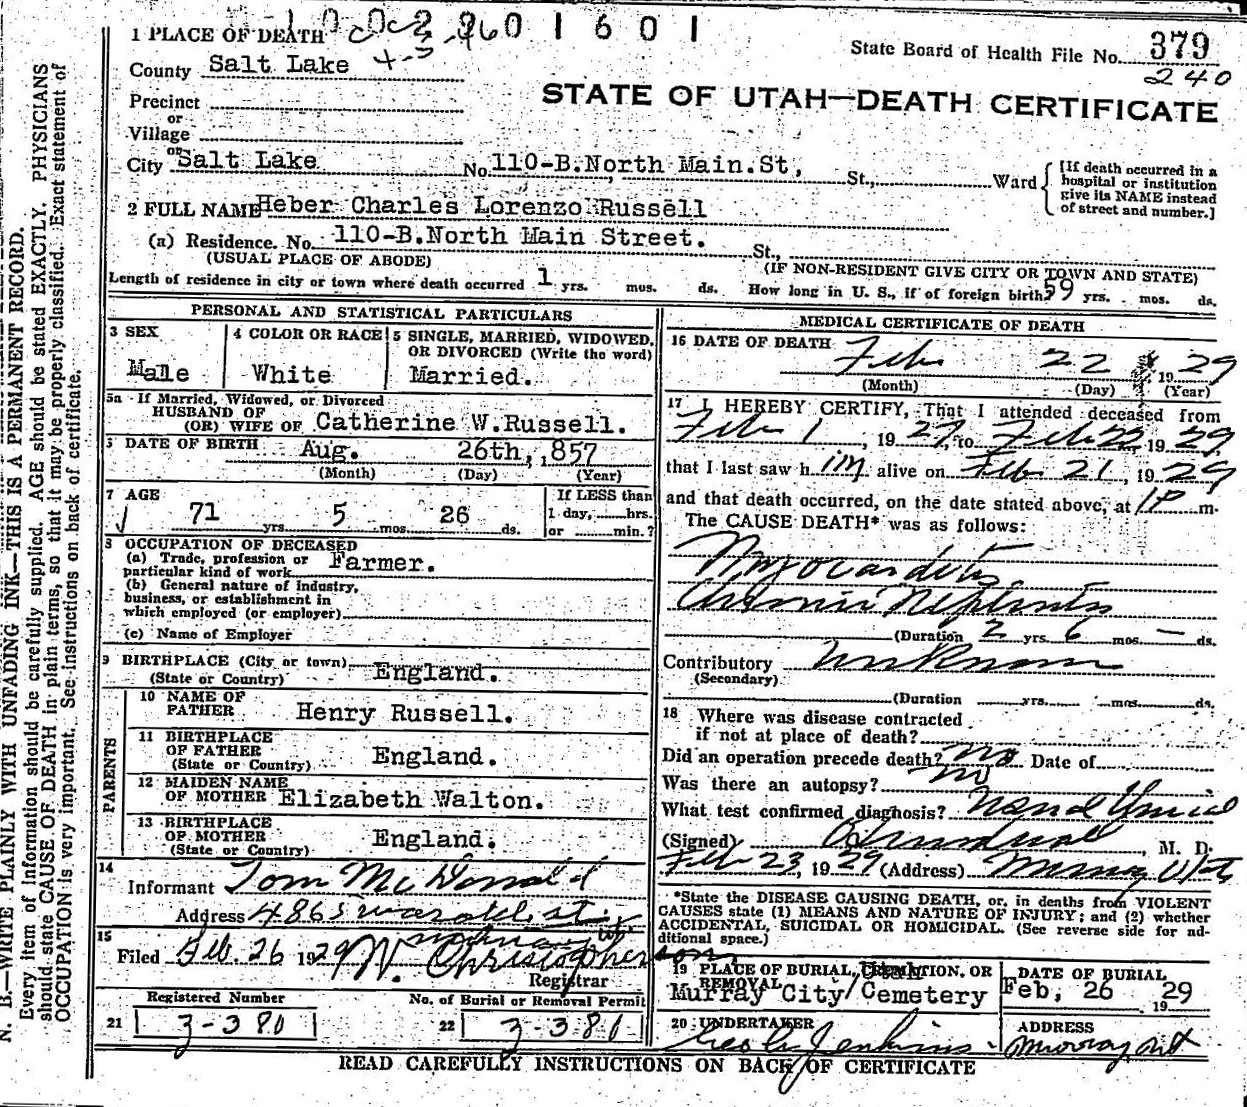 1 PLACE OF DEATH
601601
State Board of Health File No. 379
240
County Salt Lake
STATE OF UTAH—DEATH CERTIFICATE
Precinct
or
Village
or
City Salt Lake No. 110-B.North Main.St, St., Ward
[If death occurred in a
hospital or institution
give its NAME instead
of street and number.]
2 FULL NAME Heber Charles Lorenzo Russell
(a) Residence. No. 110-B.North Main Street. St.,
(USUAL PLACE OF ABODE) (IF NON-RESIDENT GIVE CITY OR TOWN AND STATE)
Length of residence in city or town where death occurred 1 yrs. mos. ds. How long in U. S., if of foreign birth? 59 yrs. mos. ds.
PERSONAL AND STATISTICAL PARTICULARS
3 SEX
Male
4 COLOR OR RACE
White
5 SINGLE, MARRIED, WIDOWED,
OR DIVORCED (Write the word)
Married.
5a If Married, Widowed, or Divorced
HUSBAND OF
(OR) WIFE OF Catherine W.Russell.
DATE OF BIRTH Aug. 26th, ,857
(Month) (Day) (Year)
7 AGE
71 yrs. 5 mos. 26 ds.
If LESS than
1 day, hrs.
or min.?
8 OCCUPATION OF DECEASED
(a) Trade, profession or
particular kind of work Farmer.
(b) General nature of industry,
business, or establishment in
which employed (or employer)
(c) Name of Employer
9 BIRTHPLACE (City or town)
(State or Country) England.
PARENTS
10 NAME OF
FATHER Henry Russell.
11 BIRTHPLACE
OF FATHER
(State or Country) England.
12 MAIDEN NAME
OF MOTHER Elizabeth Walton.
13 BIRTHPLACE
OF MOTHER
(State or Country) England.
14
Informant Tom McDonald
Address 4865
15
Filed Feb. 26 1929 W. Christopherson
Registrar
Registered Number
21 3-380
No. of Burial or Removal Permit
22 3-380
MEDICAL CERTIFICATE OF DEATH
16 DATE OF DEATH Feb 22 1929
(Month) (Day) (Year)
17 I HEREBY CERTIFY, That I attended deceased from
Feb 1, 1927, to Feb 22 1929
that I last saw him alive on Feb 21, 1929
and that death occurred, on the date stated above, at 1 P m.
The CAUSE DEATH* was as follows:
Myocarditis
Chronic Nephritis
(Duration 2 yrs. 6 mos. — ds.
Contributory Unknown
(Secondary)
(Duration yrs. mos. ds.
18 Where was disease contracted
if not at place of death?
Did an operation precede death? no Date of
Was there an autopsy? no
What test confirmed diagnosis?
(Signed) , M. D.
Feb 23, 1929 (Address) Murray Utah
*State the DISEASE CAUSING DEATH, or, in deaths from VIOLENT
CAUSES state (1) MEANS AND NATURE OF INJURY; and (2) whether
ACCIDENTAL, SUICIDAL OR HOMICIDAL. (See reverse side for ad-
ditional space.)
19 PLACE OF BURIAL, CREMATION, OR
REMOVAL Utah
Murray City/Cemetery
DATE OF BURIAL
Feb, 26 1929
20 UNDERTAKER
Jenkins
ADDRESS
Murray, Ut
READ CAREFULLY INSTRUCTIONS ON BACK OF CERTIFICATE
N. B.—WRITE PLAINLY WITH UNFADING INK—THIS IS A PERMANENT RECORD.
Every item of information should be carefully supplied. AGE should be stated EXACTLY. PHYSICIANS
should state CAUSE OF DEATH in plain terms, so that it may be properly classified. Exact statement of
OCCUPATION is very important. See instructions on back of certificate.